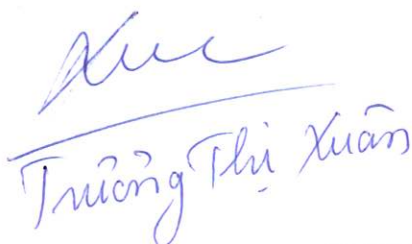 Xuc
Trương Thị Xuân